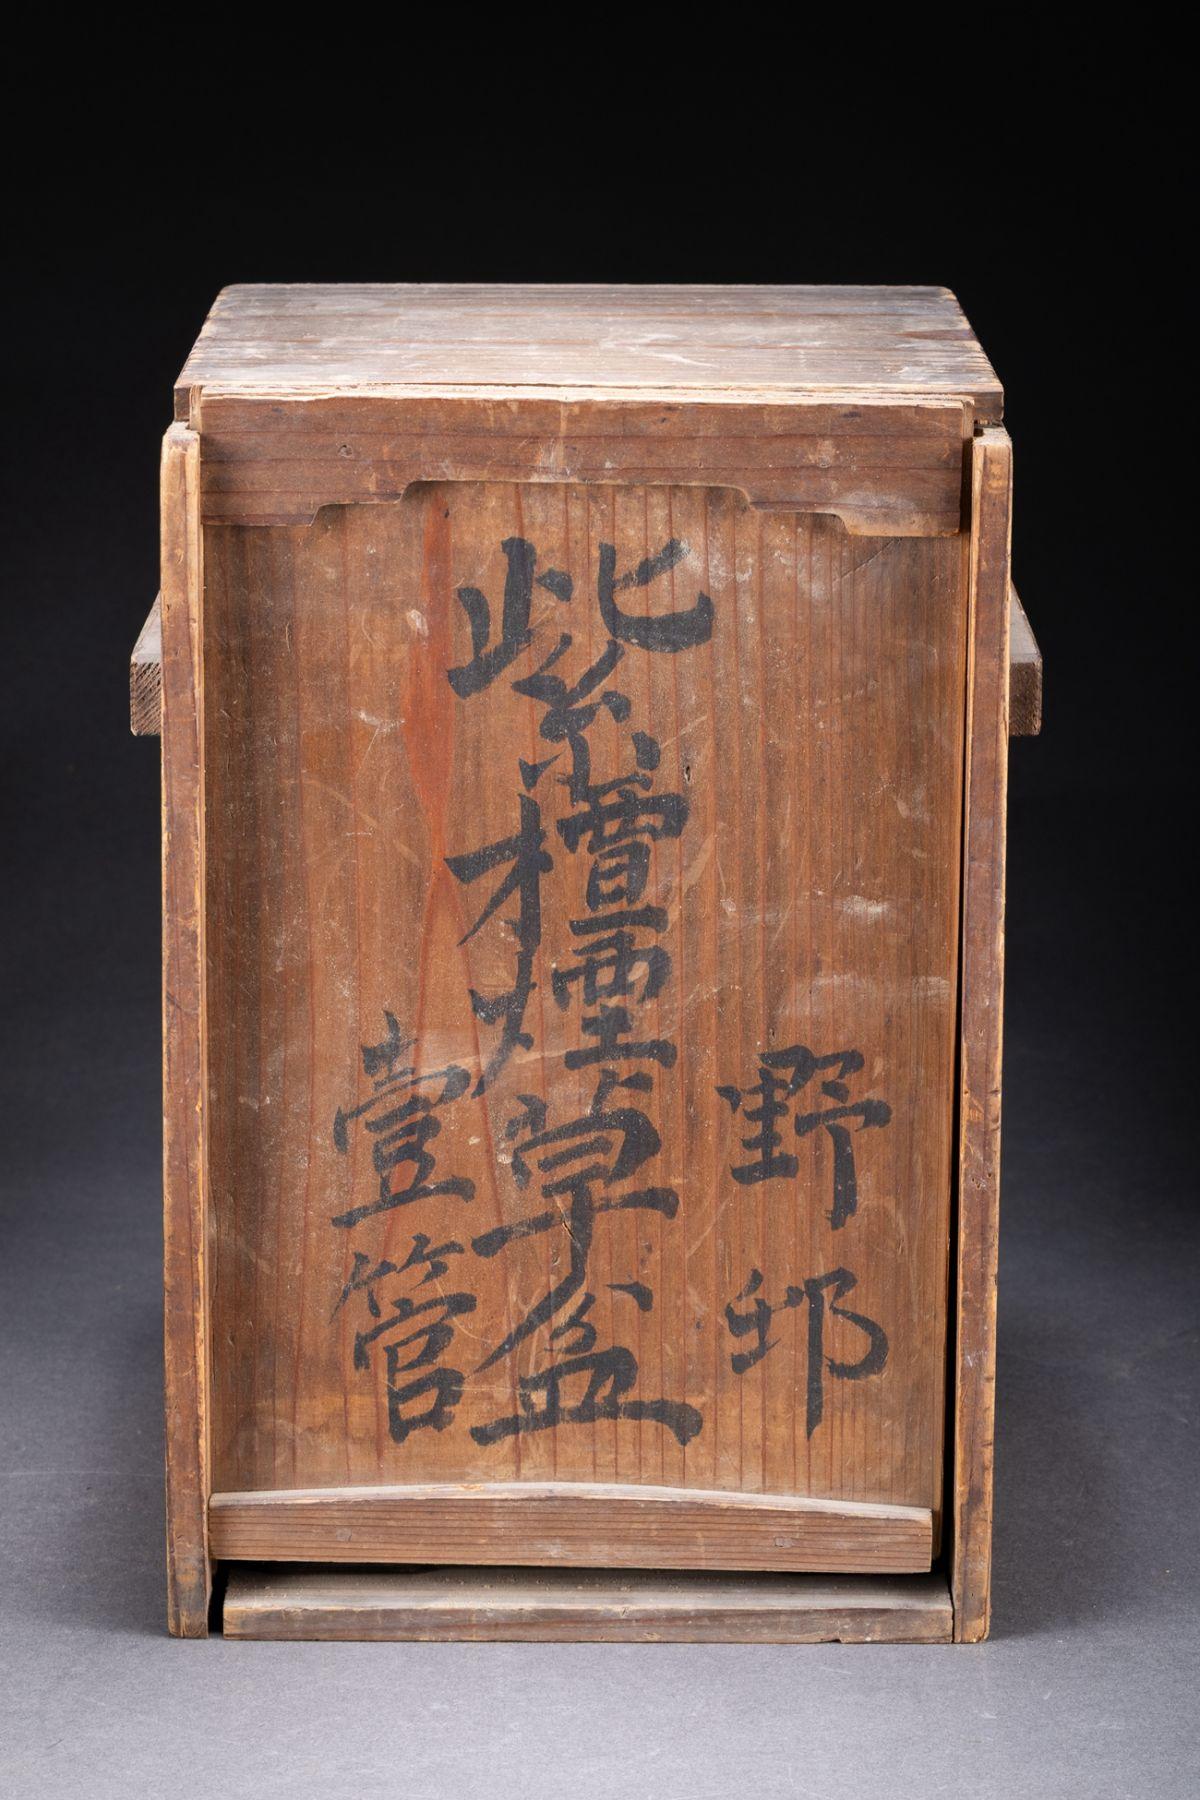 野邨
紫檀煙草盆
壹管